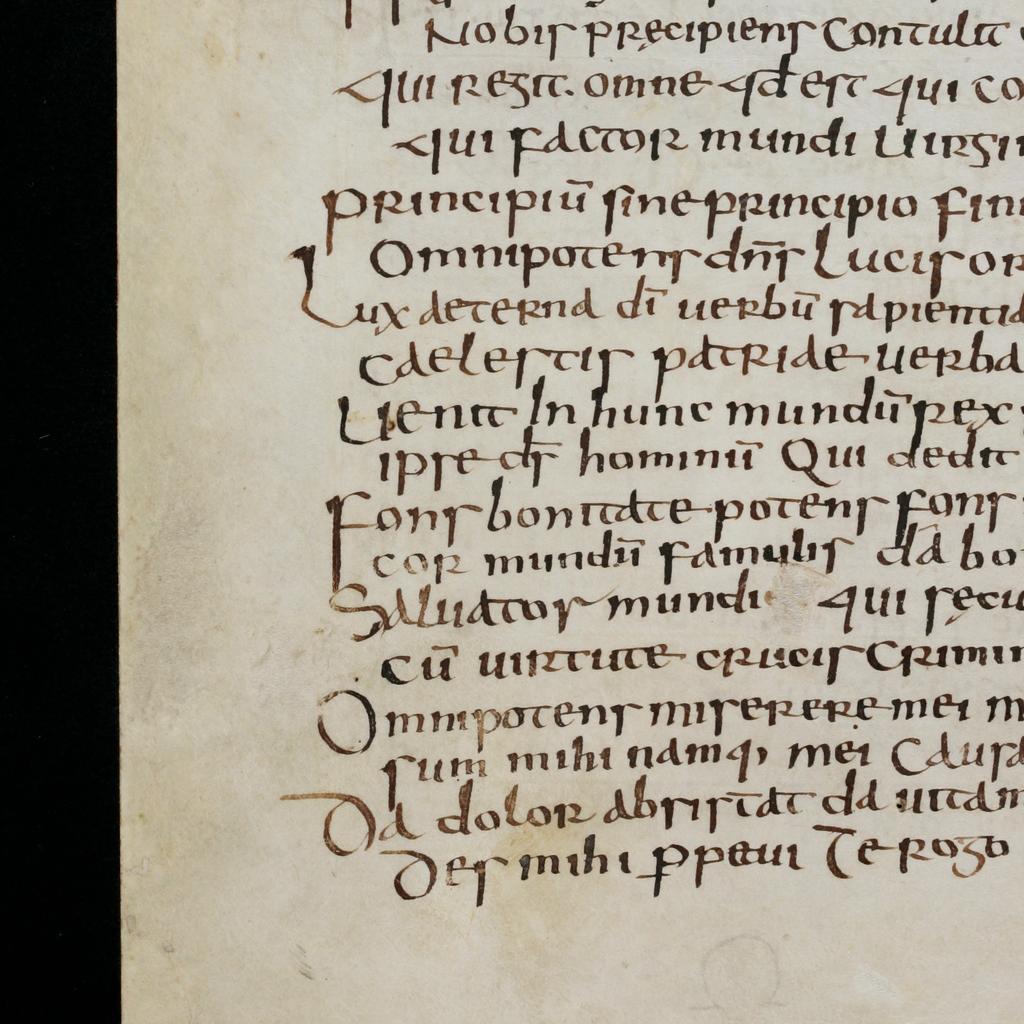 Nobis pręcipiens Contulit
qui regit. omne qđ est qui co
qui factor mundi Uirgin
principiū sine principio fini
Omnipotens dn̄s Lucis or
Lux aeterna dī uerbū sapientia
Caelestis patriae uerba
Uenit In hunc mundū rex
ipse ds̄ hominū Qui dedit
Fons bonitate potens fons
cor mundū famulis da bo
Saluator mundi qui sęcu
cū uirtute crucis Crimin
Omnipotens miserere mei m
sum mihi namq; mei Causa
Da dolor absistat da uitam
Des mihi Te rogo